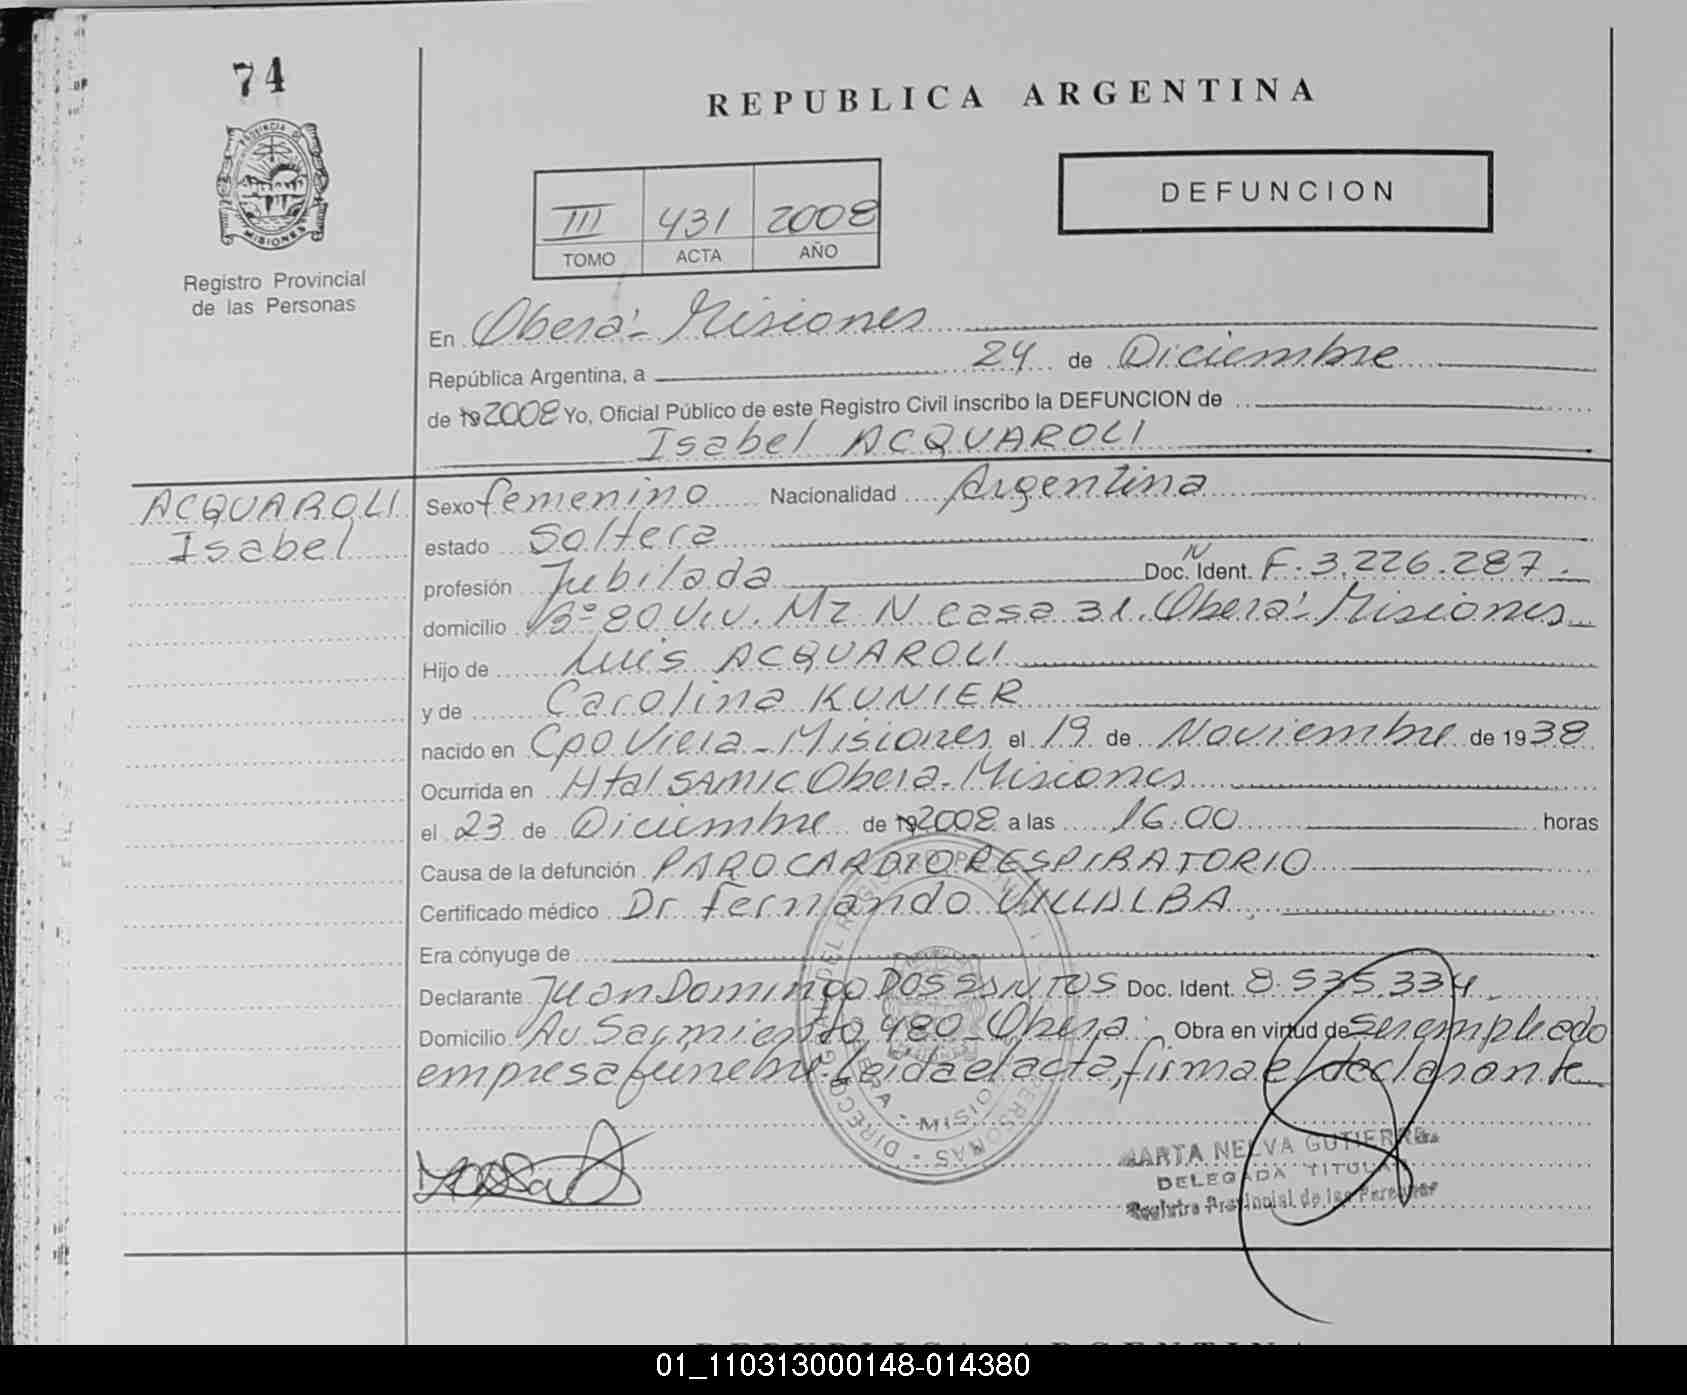 74
REPUBLICA ARGENTINA
PROVINCIA DE
MISIONES
Registro Provincial
de las Personas
III 431 2008
TOMO ACTA AÑO
DEFUNCION
En Oberá - Misiones
República Argentina, a 24 de Diciembre
de 19 2008 Yo, Oficial Público de este Registro Civil inscribo la DEFUNCION de
Isabel ACQUAROLI
ACQUAROLI
Isabel
Sexo femenino Nacionalidad Argentina
estado Soltera
profesión Jubilada Doc. N Ident. F. 3.226.287.
domicilio Bº 80 Viv. Mz N casa 31. Oberá - Misiones
Hijo de Luis ACQUAROLI
y de Carolina KUNIER
nacido en Cpo Viera - Misiones el 19 de Noviembre de 1938
Ocurrida en Htal SAMIC Oberá - Misiones
el 23 de Diciembre de 19 2008 a las 16:00 horas
Causa de la defunción PARO CARDIO RESPIRATORIO
Certificado médico Dr. Fernando VILLALBA
Era cónyuge de
Declarante Juan Domingo DOS SANTOS Doc. Ident. 8.535.334
Domicilio Av Sarmiento 480 - Oberá Obra en virtud de ser empleado
empresa fúnebre. Leida el acta, firma el declarante
MARTA NELVA GUTIERREZ
DELEGADA TITULAR
Registro Provincial de las Personas
REPUBLICA ARGENTINA
01_110313000148-014380